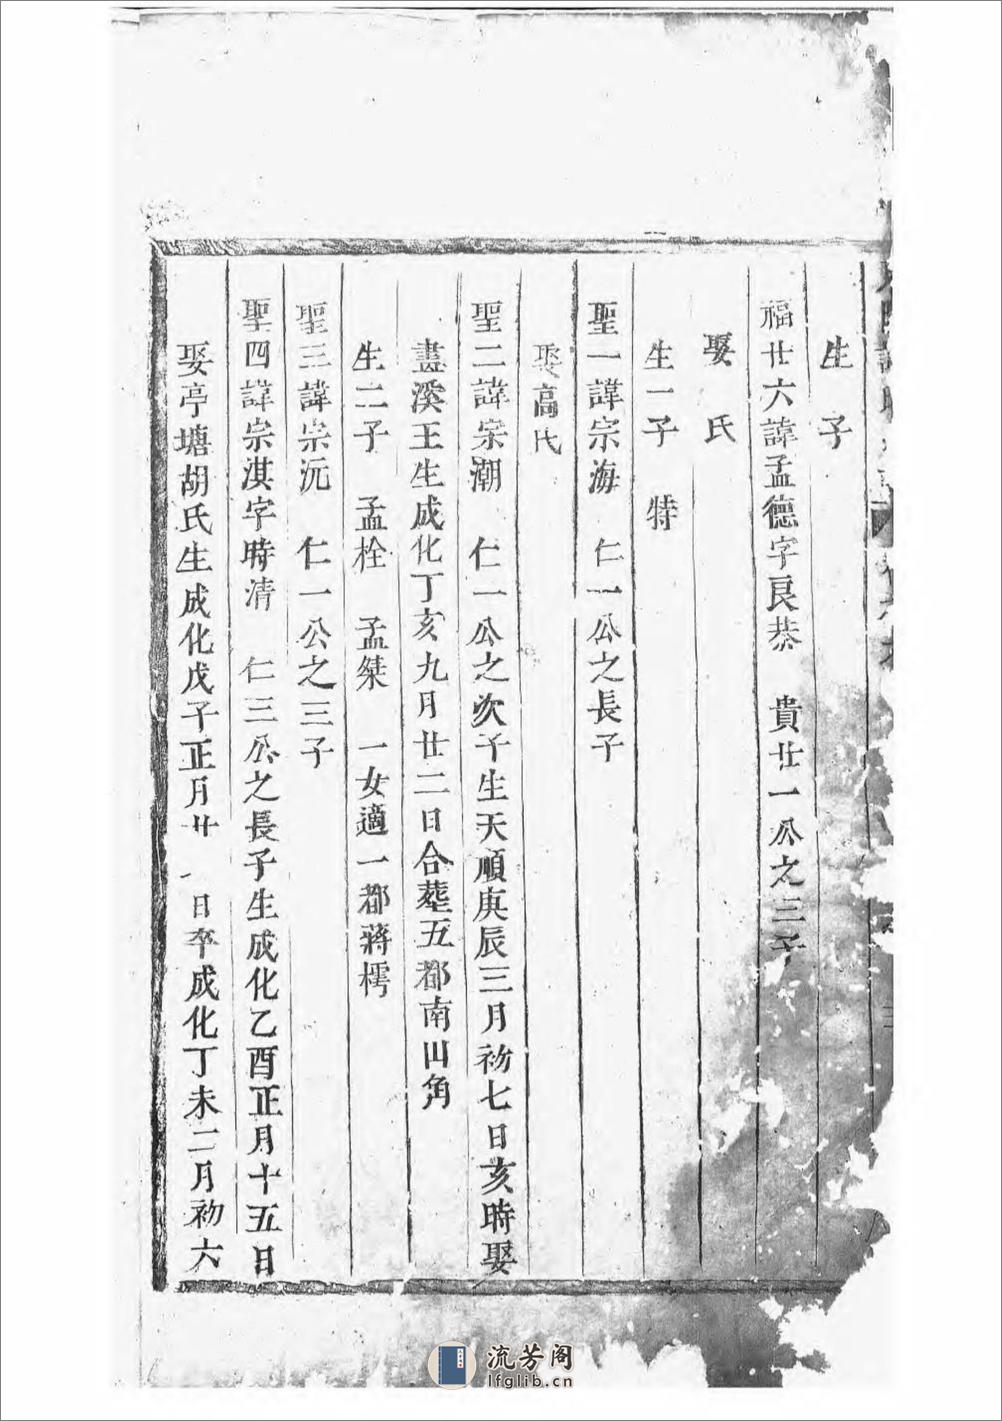 生　子
福廿六諱孟德字良恭　貴廿一公之三子
娶　氏
生一子　特
聖一諱宗海　仁一公之長子
娶高氏
聖二諱宗潮　仁一公之次子生天順庚辰三月初七日亥時娶
盡溪王生成化丁亥九月廿二日合葬五都南山角
生二子　孟栓　孟桀　一女適一都蔣樗
聖三諱宗沅　仁一公之三子
聖四諱宗淇字時清　仁三公之長子生成化乙酉正月十五日
娶亭塘胡氏生成化戊子正月廿一日卒成化丁未二月初六
流芳阁
lfglib.cn